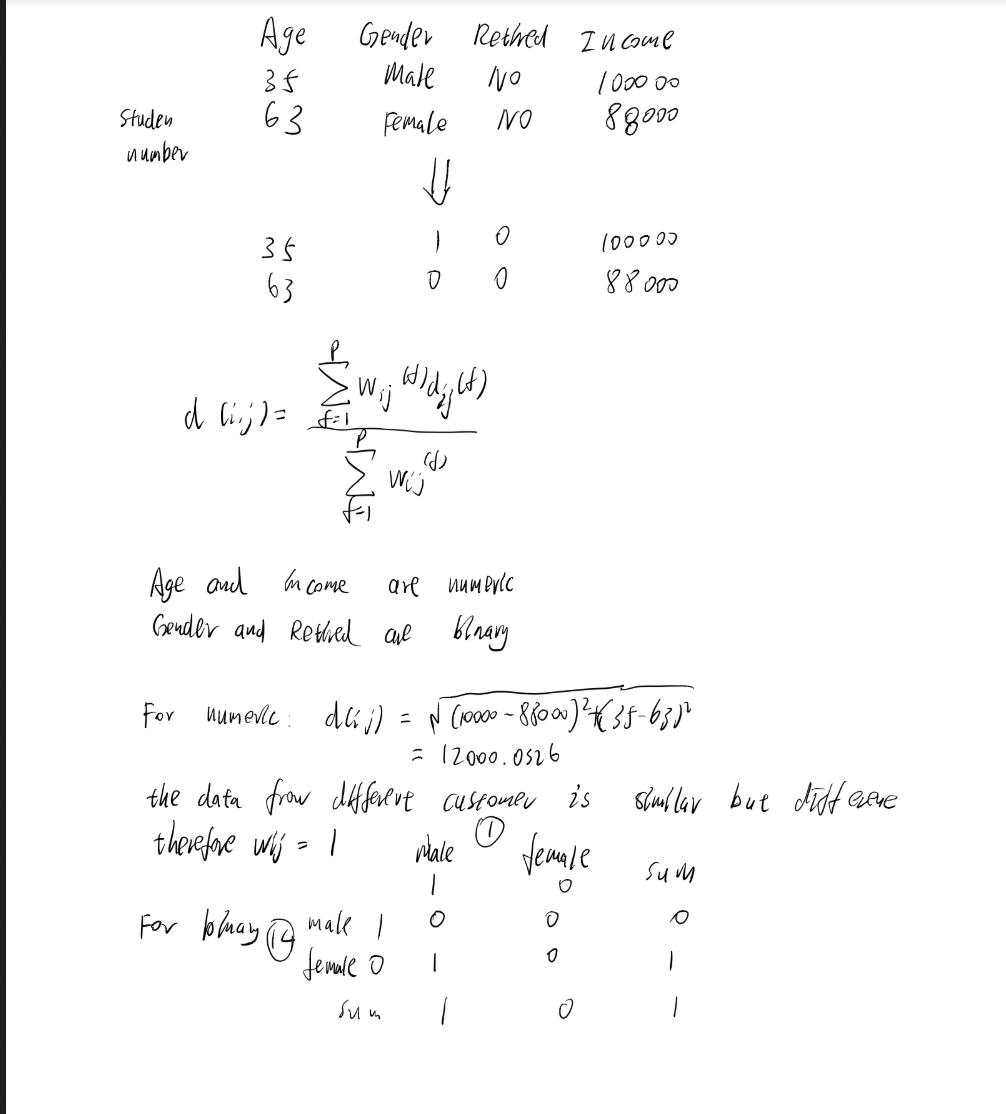 Age Gender Retired Income
35 Male NO 100000
63 Female NO 88000
Studen
number
⇓
35 1 0 100000
63 0 0 88000
d (i,j) = \frac{\sum_{f=1}^{p} w_{ij}^{(f)} d_{ij}^{(f)}}{\sum_{f=1}^{p} w_{ij}^{(f)}}
Age and income are numeric
Gender and Retired are binary
For numeric: d(i j) = √(10000 - 88000)² + (35-63)²
= 12000.0326
the data from different customer is similar but
therefore wij = 1
①
Male female sum
1 0
For binary ⑭ male 1 0 0 0
female 0 1 0 1
sum 1 0 1